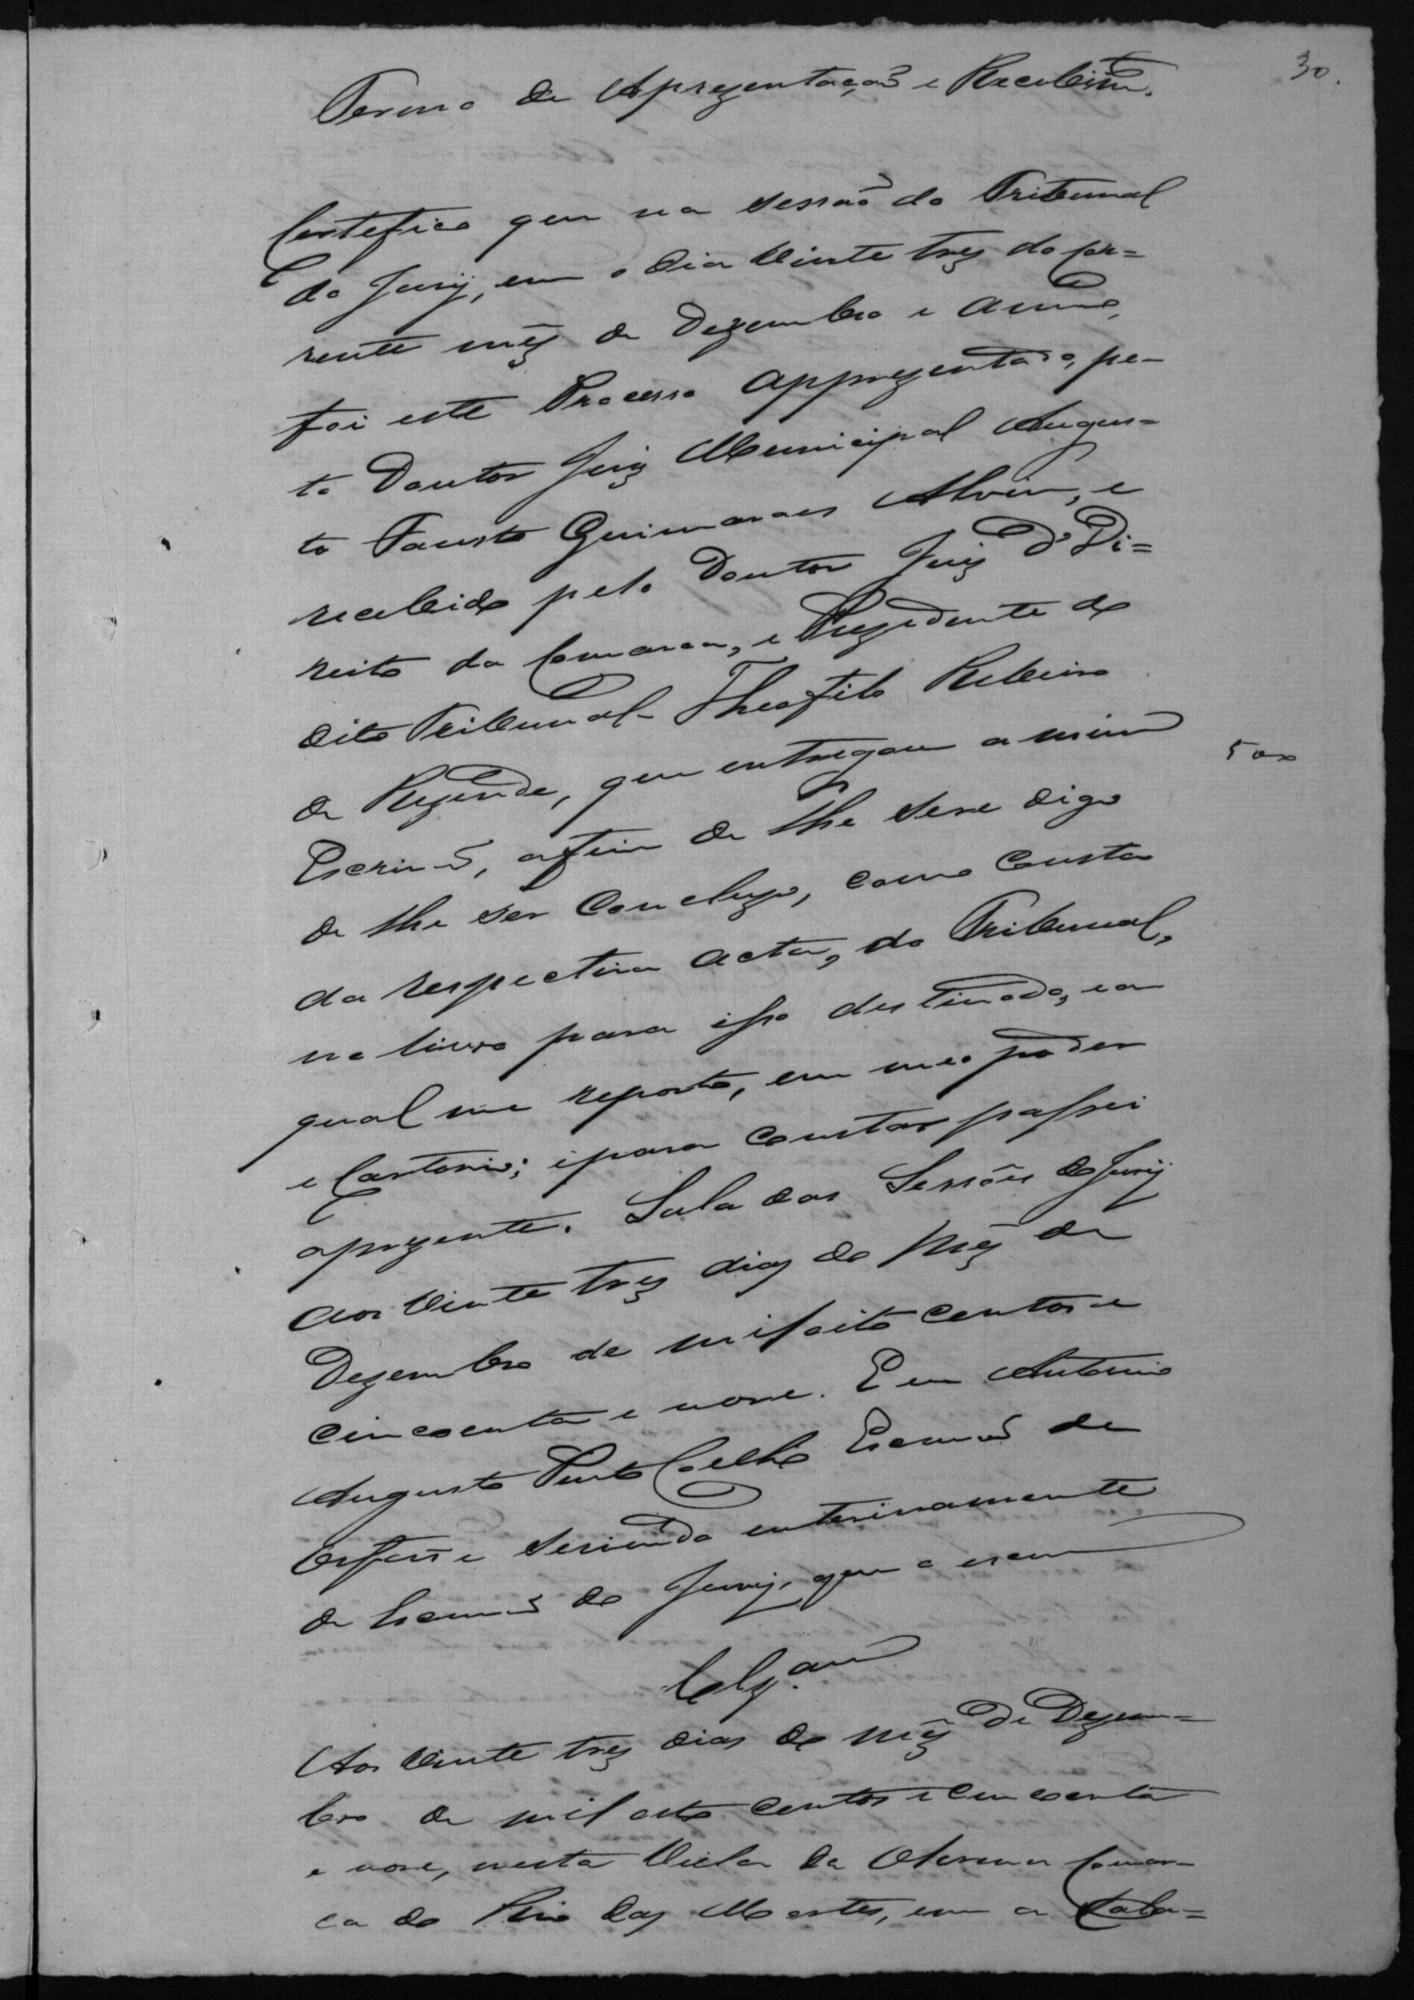 30.
Termo de Aprezentaçaõ e Recebim.to
Certefico que na sessaõ do Tribunal
do Jury, em o dia vinte trez do cor=
rente mêz de Dezembro e anno,
foi este Processo apprezentado, pe-
lo Doutor Juiz Municipal Augus=
to Fausto Guimaraes Alvim, e
recebido pelo Doutor Juiz d'Di=
reito da Comarca, e Prezidente do
dito Tribunal Theofilo Ribeiro
de Rezende, que entregou a mim
500
Escrivaõ, afim de lhe sere digo
de lhe ser concluzo, como consta
da respectiva acta, do Tribunal,
no livro para isso destinado, e a
qual me reporto, em meo poder
e Cartorio; e para constar passei
a prezente. Sala das Sessões do Jury
aos vinte trez dias do Mêz de
Dezembro de mil oito centos e
cincoenta e nove. Eu Antonio
Augusto Pinto Coelho Escrivaõ de
Orfaõs e servindo enterinamente
de Escrivaõ do Jury, que o escrevi
Clz.am
Aos vinte trez dias do mêz de Dezem=
bro de mil oito centos e cincoenta
e nove, nesta Villa da Oliveira Comar=
ca do Rio das Mortes, em a Sala=